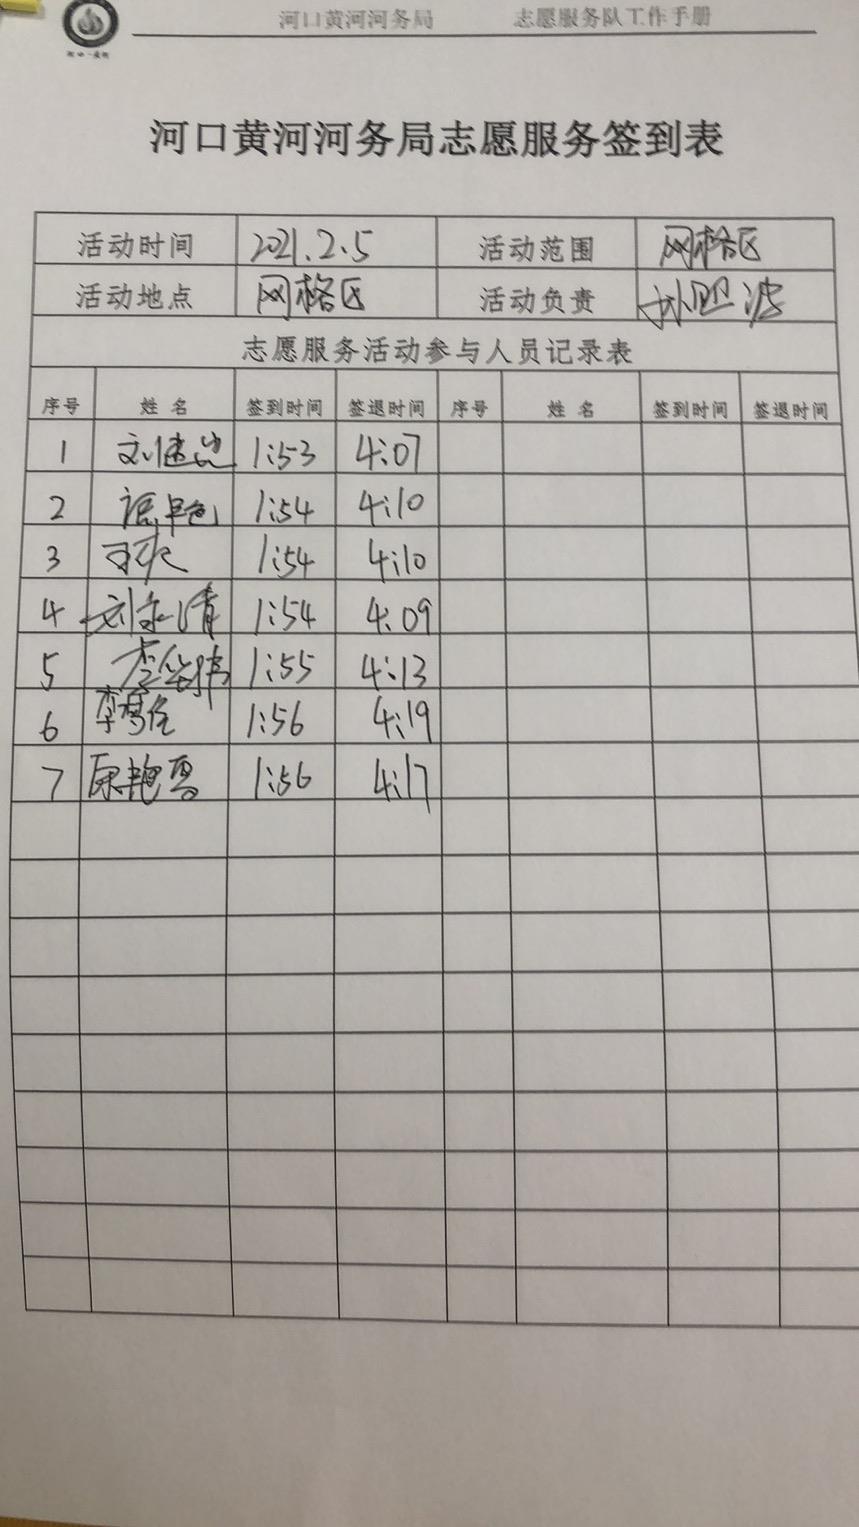 河口黄河河务局 志愿服务队工作手册
河口黄河河务局志愿服务签到表
活动时间 2021.2.5 活动范围 网格区
活动地点 网格区 活动负责
志愿服务活动参与人员记录表
序号 姓名 签到时间 签退时间 序号 姓名 签到时间 签退时间
1 1:53 4:07
2 1:54 4:10
3 1:54 4:10
4 刘永清 1:54 4:09
5 李华伟 1:55 4:13
6 1:56 4:19
7 1:56 4:17